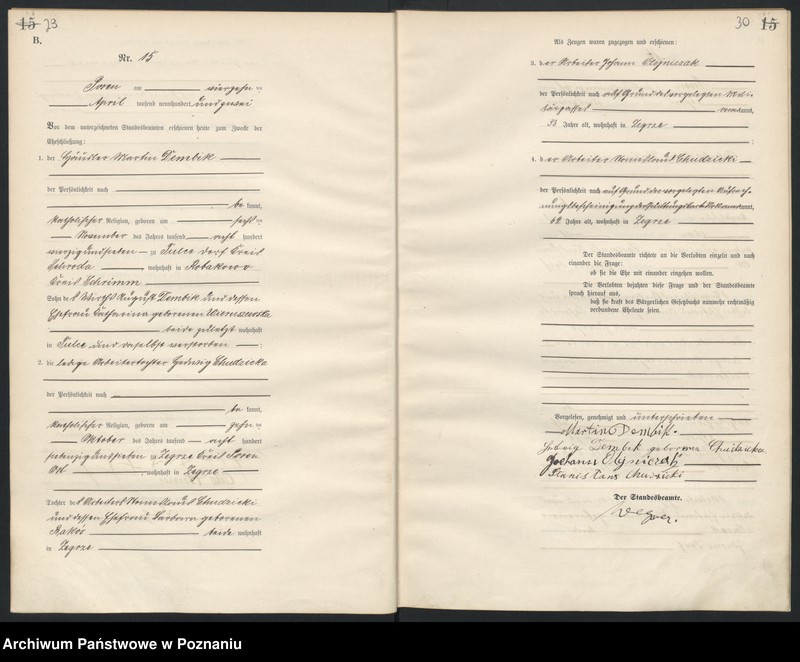 15 29
B.
Nr. 15
Posen am vierzehn ten
April tausend neunhundert und zwei
Vor dem unterzeichneten Standesbeamten erschienen heute zum Zwecke der
Eheschließung:
1. der Händler Martin Dembik
der Persönlichkeit nach
be kannt,
katholischer Religion, geboren am
November des Jahres tausend acht hundert
zu Tulce Dorf Kreis
Schroda, wohnhaft in
Kreis Schrimm
Sohn des Wirths August Dembik und dessen
Ehefrau Catharina geborenen
beide zuletzt wohnhaft
in Tulce und daselbst verstorben;
2. die ledige Arbeitertochter Hedwig Chudzicka
der Persönlichkeit nach
be kannt,
katholischer Religion, geboren am zehn ten
Oktober des Jahres tausend acht hundert
zu Zegrze Kreis Posen
Ost, wohnhaft in Zegrze
Tochter des Arbeiters Stanislaus Chudzicki
und dessen Ehefrau Barbara geborenen
beide wohnhaft
in Zegrze
30 15
Als Zeugen waren zugezogen und erschienen:
3. der Arbeiter Johann Olejniczak
der Persönlichkeit nach auf Grund des vorgelegten
kannt,
Jahre alt, wohnhaft in Zegrze
;
4. der Arbeiter Stanislaus Chudzicki
der Persönlichkeit nach auf Grund der vorgelegten
kannt,
62 Jahre alt, wohnhaft in Zegrze
Der Standesbeamte richtete an die Verlobten einzeln und nach
einander die Frage:
ob sie die Ehe mit einander eingehen wollen.
Die Verlobten bejahten diese Frage und der Standesbeamte
sprach hierauf aus,
daß sie kraft des Bürgerlichen Gesetzbuchs nunmehr rechtmäßig
verbundene Eheleute seien.
Vorgelesen, genehmigt und unterschrieben
Martin Dembik.
Hedwig Dembik geborenen
Johann Olejniczak
Stanislaus Chudzicki
Der Standesbeamte.
Archiwum Państwowe w Poznaniu